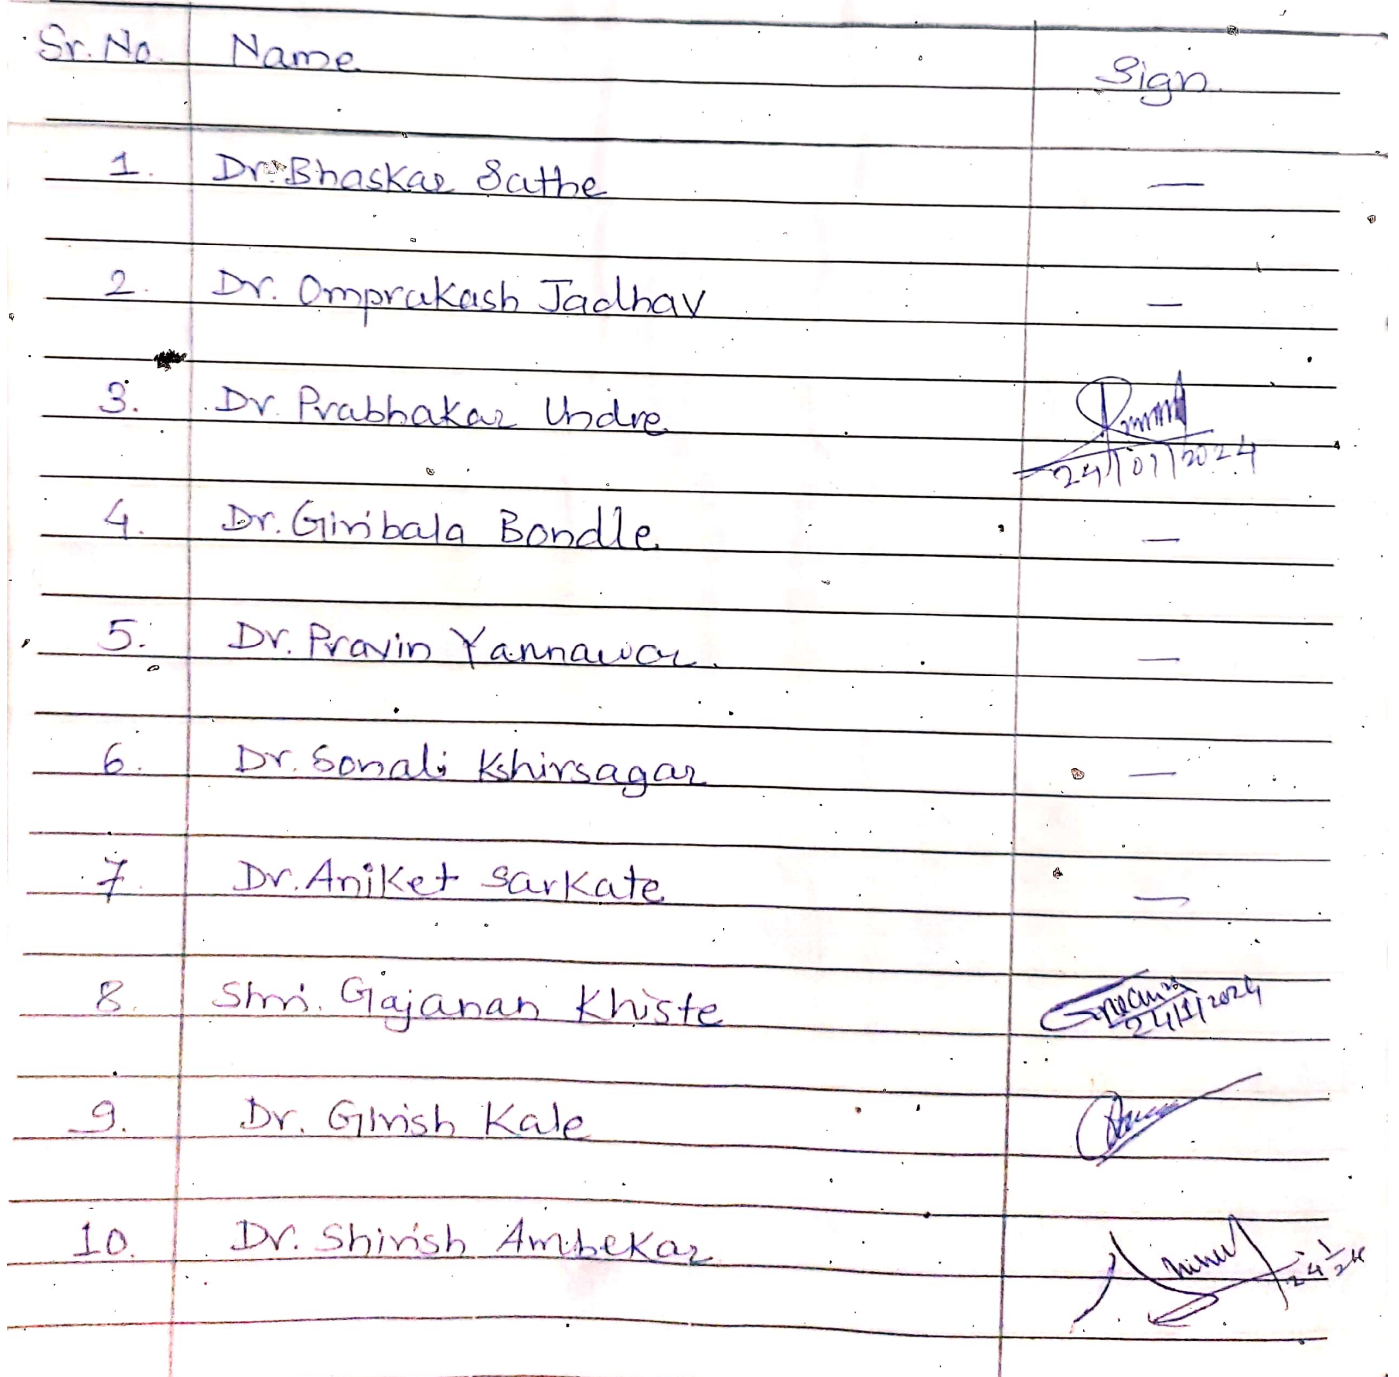 Sr. No. Name Sign.
1. Dr. Bhaskar Sathe —
2. Dr. Omprakash Jadhav —
3. Dr. Prabhakar Undre
24/01/2024
4. Dr. Giribala Bondle —
5. Dr. Pravin Yannawar. —
6. Dr. Sonali Kshirsagar —
7. Dr. Aniket Sarkate —
8. Shri. Gajanan Khiste
24/1/2024
9. Dr. Girish Kale
10. Dr. Shirish Ambekar